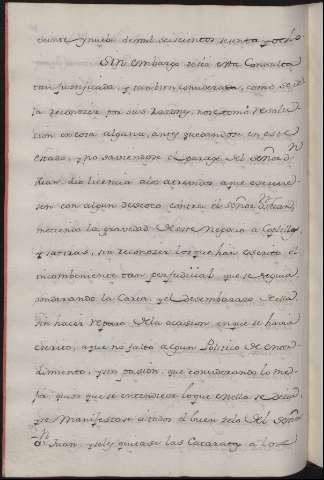 veinte y nueve de mil seiscientos sesenta y ocho
Sin embargo desta esta Consulta
tan justificada, y tambien considerada, como se de
la reconocer por sus Razones, no se tomó resolu
cion en cosa alguna, antes quedandose en este
estado, y no saviendose el parage del señor D.n
Juan, dio licencia a los atrevidos a que escrivie
sen con algun descoco contra el señor D. Juan,
metiendo la gravedad de este Negocio a Coplillas
y satiras, sin reconocer los que han escrito el
incombeniente tan perjudicial que se seguia
ponderando la Carta, y el desembarazo della
sin hacer reparo de la ocasion en que se havia
escrito, a que no faltó algun Politico de enten
dimiento, y sin pasion, que considerando lo me
jor, quiso que se entendiese lo que en ella se decia
y se Manifestase a todos el buen zelo del señor
D.n Juan, y se les quitase las Cataratas a los